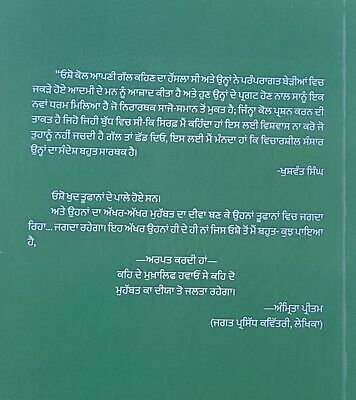 “ਓਸ਼ੋ ਕੋਲ ਆਪਣੀ ਗੱਲ ਕਹਿਣ ਦਾ ਹੌਂਸਲਾ ਸੀ ਅਤੇ ਉਨ੍ਹਾਂ ਨੇ ਪਰੰਪਰਾਗਤ ਬੇੜੀਆਂ ਵਿਚ
ਜਕੜੇ ਹੋਏ ਆਦਮੀ ਦੇ ਮਨ ਨੂੰ ਆਜ਼ਾਦ ਕੀਤਾ ਹੈ ਅਤੇ ਹੁਣ ਉਨ੍ਹਾਂ ਦੇ ਪ੍ਰਗਟ ਹੋਣ ਨਾਲ ਸਾਨੂੰ ਇਕ
ਨਵਾਂ ਧਰਮ ਮਿਲਿਆ ਹੈ ਜੋ ਨਿਰਾਰਥਕ ਸਾਜੋ-ਸਮਾਨ ਤੋਂ ਮੁਕਤ ਹੈ; ਜਿੰਨ੍ਹਾ ਕੋਲ ਪ੍ਰਸ਼ਨ ਕਰਨ ਦੀ
ਤਾਕਤ ਹੈ ਜਿਹੋ ਜਿਹੀ ਬੁੱਧ ਵਿਚ ਸੀ-ਕਿ ਸਿਰਫ਼ ਮੈਂ ਕਹਿੰਦਾ ਹਾਂ ਇਸ ਲਈ ਵਿਸ਼ਵਾਸ ਨਾ ਕਰੋ ਜੋ
ਤੁਹਾਨੂੰ ਨਹੀਂ ਜਚਦੀ ਹੈ ਗੱਲ ਤਾਂ ਛੱਡ ਦਿਓ, ਇਸ ਲਈ ਮੈਂ ਮੰਨਦਾ ਹਾਂ ਕਿ ਵਿਚਾਰਸ਼ੀਲ ਸੰਸਾਰ
ਉਨ੍ਹਾਂ ਦਾ ਸੰਦੇਸ਼ ਬਹੁਤ ਸਾਰਥਕ ਹੈ।
-ਖੁਸ਼ਵੰਤ ਸਿੰਘ
ਓਸ਼ੋ ਖੁਦ ਤੂਫਾਨਾਂ ਦੇ ਪਾਲੇ ਹੋਏ ਸਨ।
ਅਤੇ ਉਹਨਾਂ ਦਾ ਅੱਖਰ-ਅੱਖਰ ਮੁਹੱਬਤ ਦਾ ਦੀਵਾ ਬਣ ਕੇ ਉਹਨਾਂ ਤੂਫਾਨਾਂ ਵਿਚ ਜਗਦਾ
ਰਿਹਾ... ਜਗਦਾ ਰਹੇਗਾ। ਇਹ ਅੱਖਰ ਉਹਨਾਂ ਹੀ ਦੇ ਹੀ ਨਾਂ ਜਿਸ ਓਸ਼ੋ ਤੋਂ ਮੈਂ ਬਹੁਤ-ਕੁਝ ਪਾਇਆ
ਹੈ,
—ਅਰਪਤ ਕਰਦੀ ਹਾਂ—
ਕਹਿ ਦੋ ਮੁਖ਼ਾਲਿਫ਼ ਹਵਾਓਂ ਸੇ ਕਹਿ ਦੋ
ਮੁਹੱਬਤ ਕਾ ਦੀਯਾ ਤੋ ਜਲਤਾ ਰਹੇਗਾ।
—ਅੰਮ੍ਰਿਤਾ ਪ੍ਰੀਤਮ
(ਜਗਤ ਪ੍ਰਸਿੱਧ ਕਵਿੱਤਰੀ, ਲੇਖਿਕਾ)